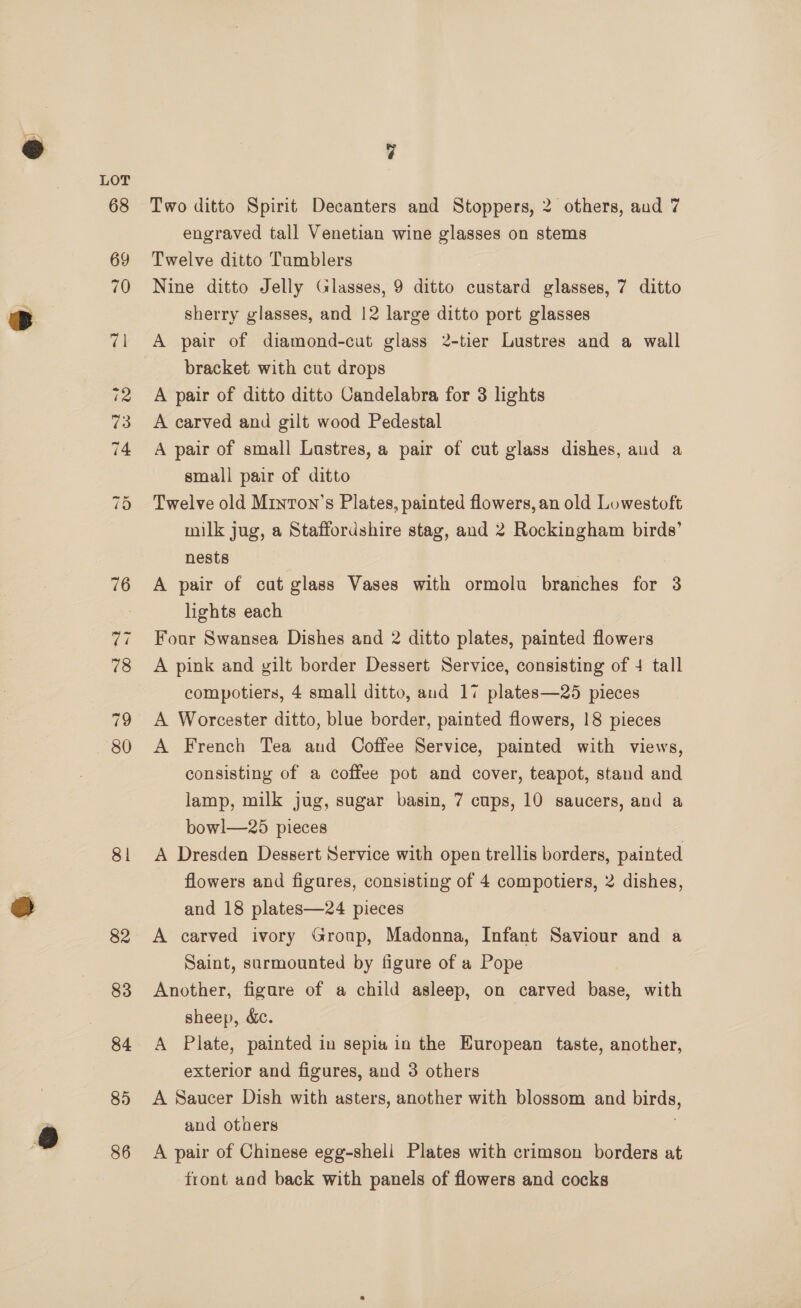 7
LOT
68 Two ditto Spirit Decanters and Stoppers, 2 others, and 7
engraved tall Venetian wine glasses on stems
69 Twelve ditto Tumblers
70 Nine ditto Jelly Glasses, 9 ditto custard glasses, 7 ditto
sherry glasses, and 12 large ditto port glasses
71 A pair of diamond-cut glass 2-tier Lustres and a wall
bracket with cut drops
72 A pair of ditto ditto Candelabra for 3 lights
73 A carved and gilt wood Pedestal
74 A pair of small Lustres, a pair of cut glass dishes, and a
small pair of ditto
75 Twelve old MINTON's Plates, painted flowers, an old Lowestoft
milk jug, a Staffordshire stag, and 2 Rockingham birds'
nests
76 A pair of cut glass Vases with ormolu branches for 3
lights each
77 Four Swansea Dishes and 2 ditto plates, painted flowers
78 A pink and gilt border Dessert Service, consisting of 4 tall
compotiers, 4 small ditto, and 17 plates—25 pieces
79 A Worcester ditto, blue border, painted flowers, 18 pieces
80 A French Tea and Coffee Service, painted with views,
consisting of a coffee pot and cover, teapot, stand and
lamp, milk jug, sugar basin, 7 cups, 10 saucers, and a
bowl—25 pieces
81 A Dresden Dessert Service with open trellis borders, painted
flowers and figures, consisting of 4 compotiers, 2 dishes,
and 18 plates—24 pieces
82 A carved ivory Group, Madonna, Infant Saviour and a
Saint, surmounted by figure of a Pope
83 Another, figure of a child asleep, on carved base, with
sheep, &c.
84 A Plate, painted in sepia in the European taste, another,
exterior and figures, and 3 others
85 A Saucer Dish with asters, another with blossom and birds,
and others
86 A pair of Chinese egg-shell Plates with crimson borders at
front and back with panels of flowers and cocks